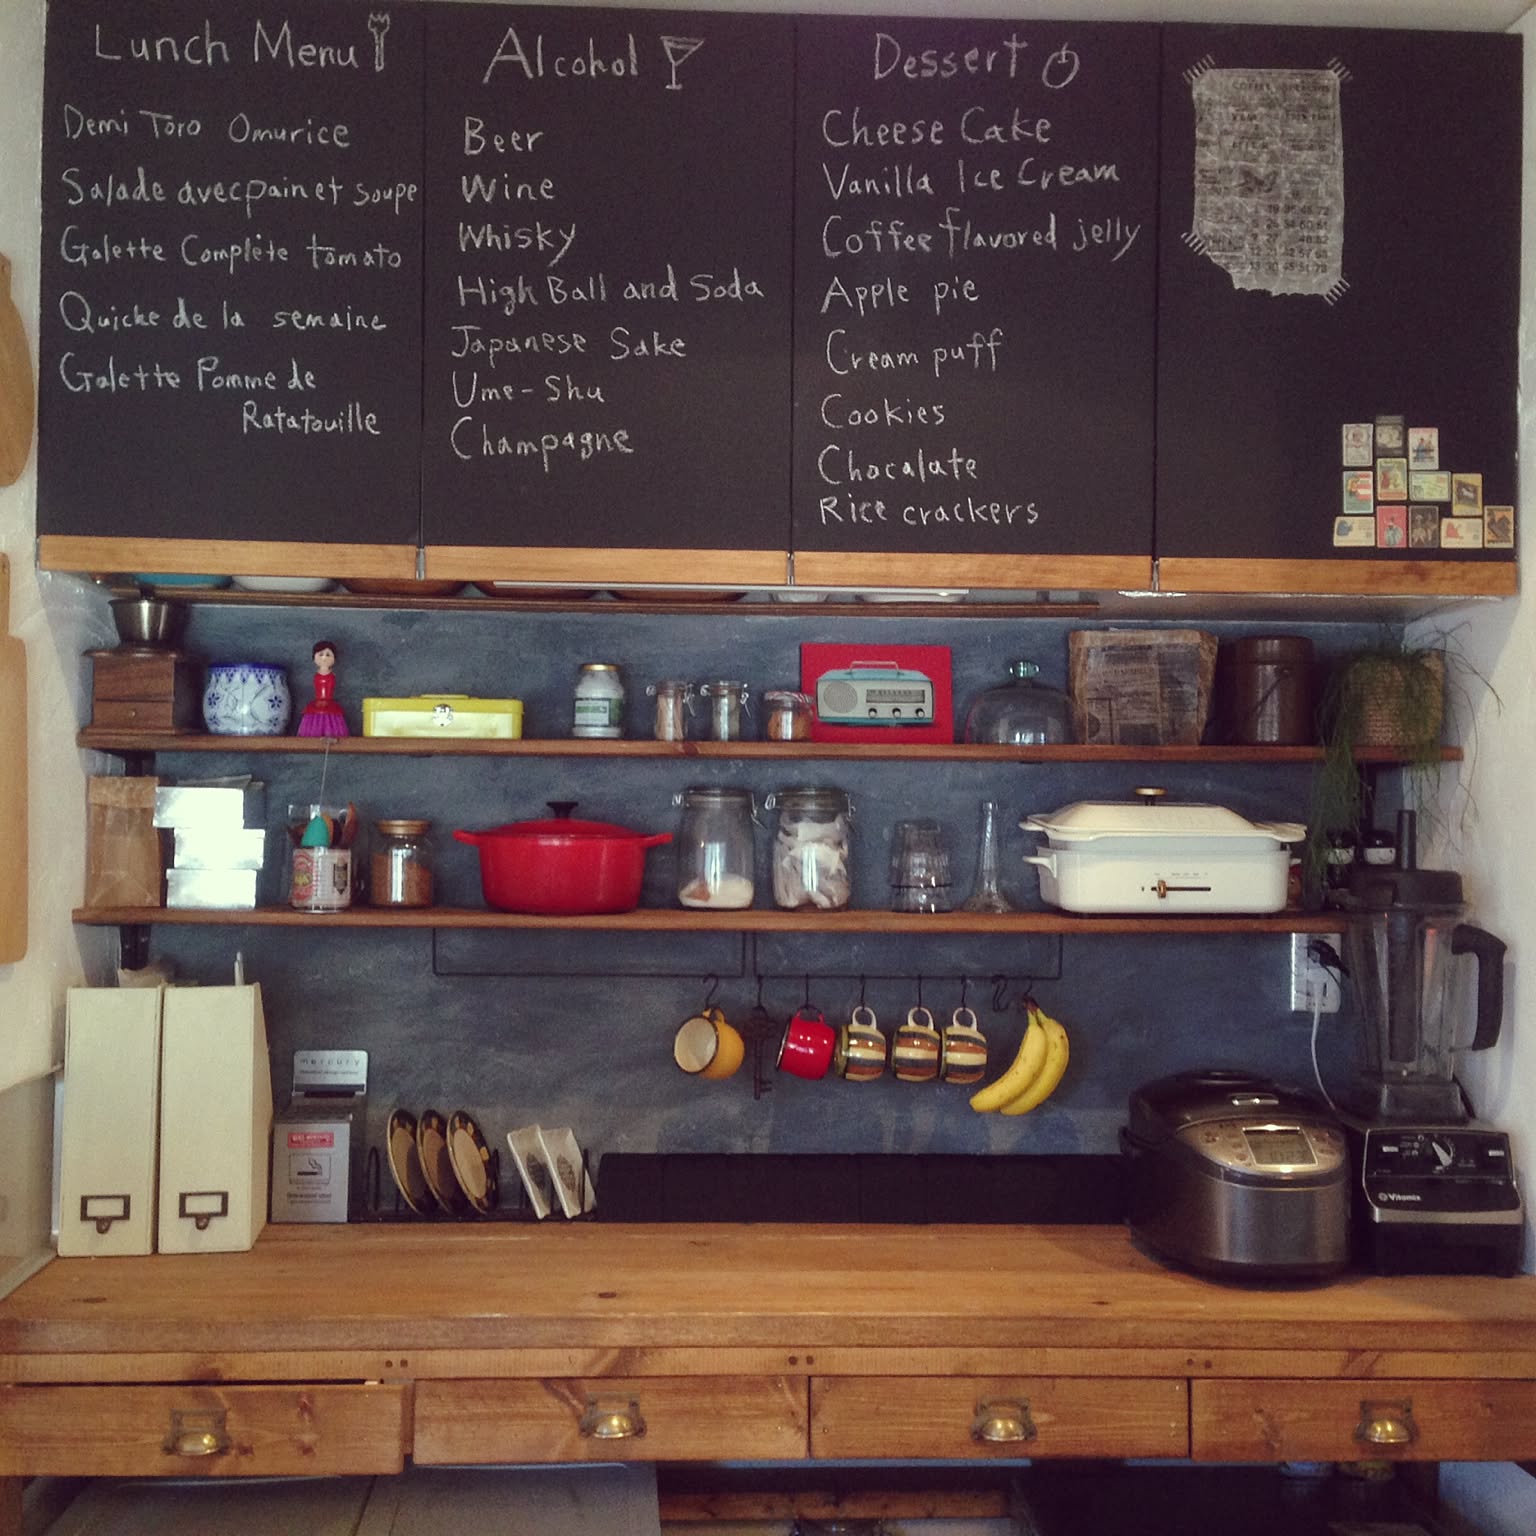 Lunch Menu
Demi Toro Omurice
Salade avec pain et soupe
Galette Complète tomato
Quiche de la semaine
Galette Pomme de
Ratatouille
Alcohol
Beer
Wine
Whisky
High Ball and Soda
Japanese Sake
Ume-Shu
Champagne
Dessert
Cheese Cake
Vanilla Ice Cream
Coffee flavored jelly
Apple pie
Cream puff
Cookies
Chocalate
Rice crackers
mercury
Vitamix